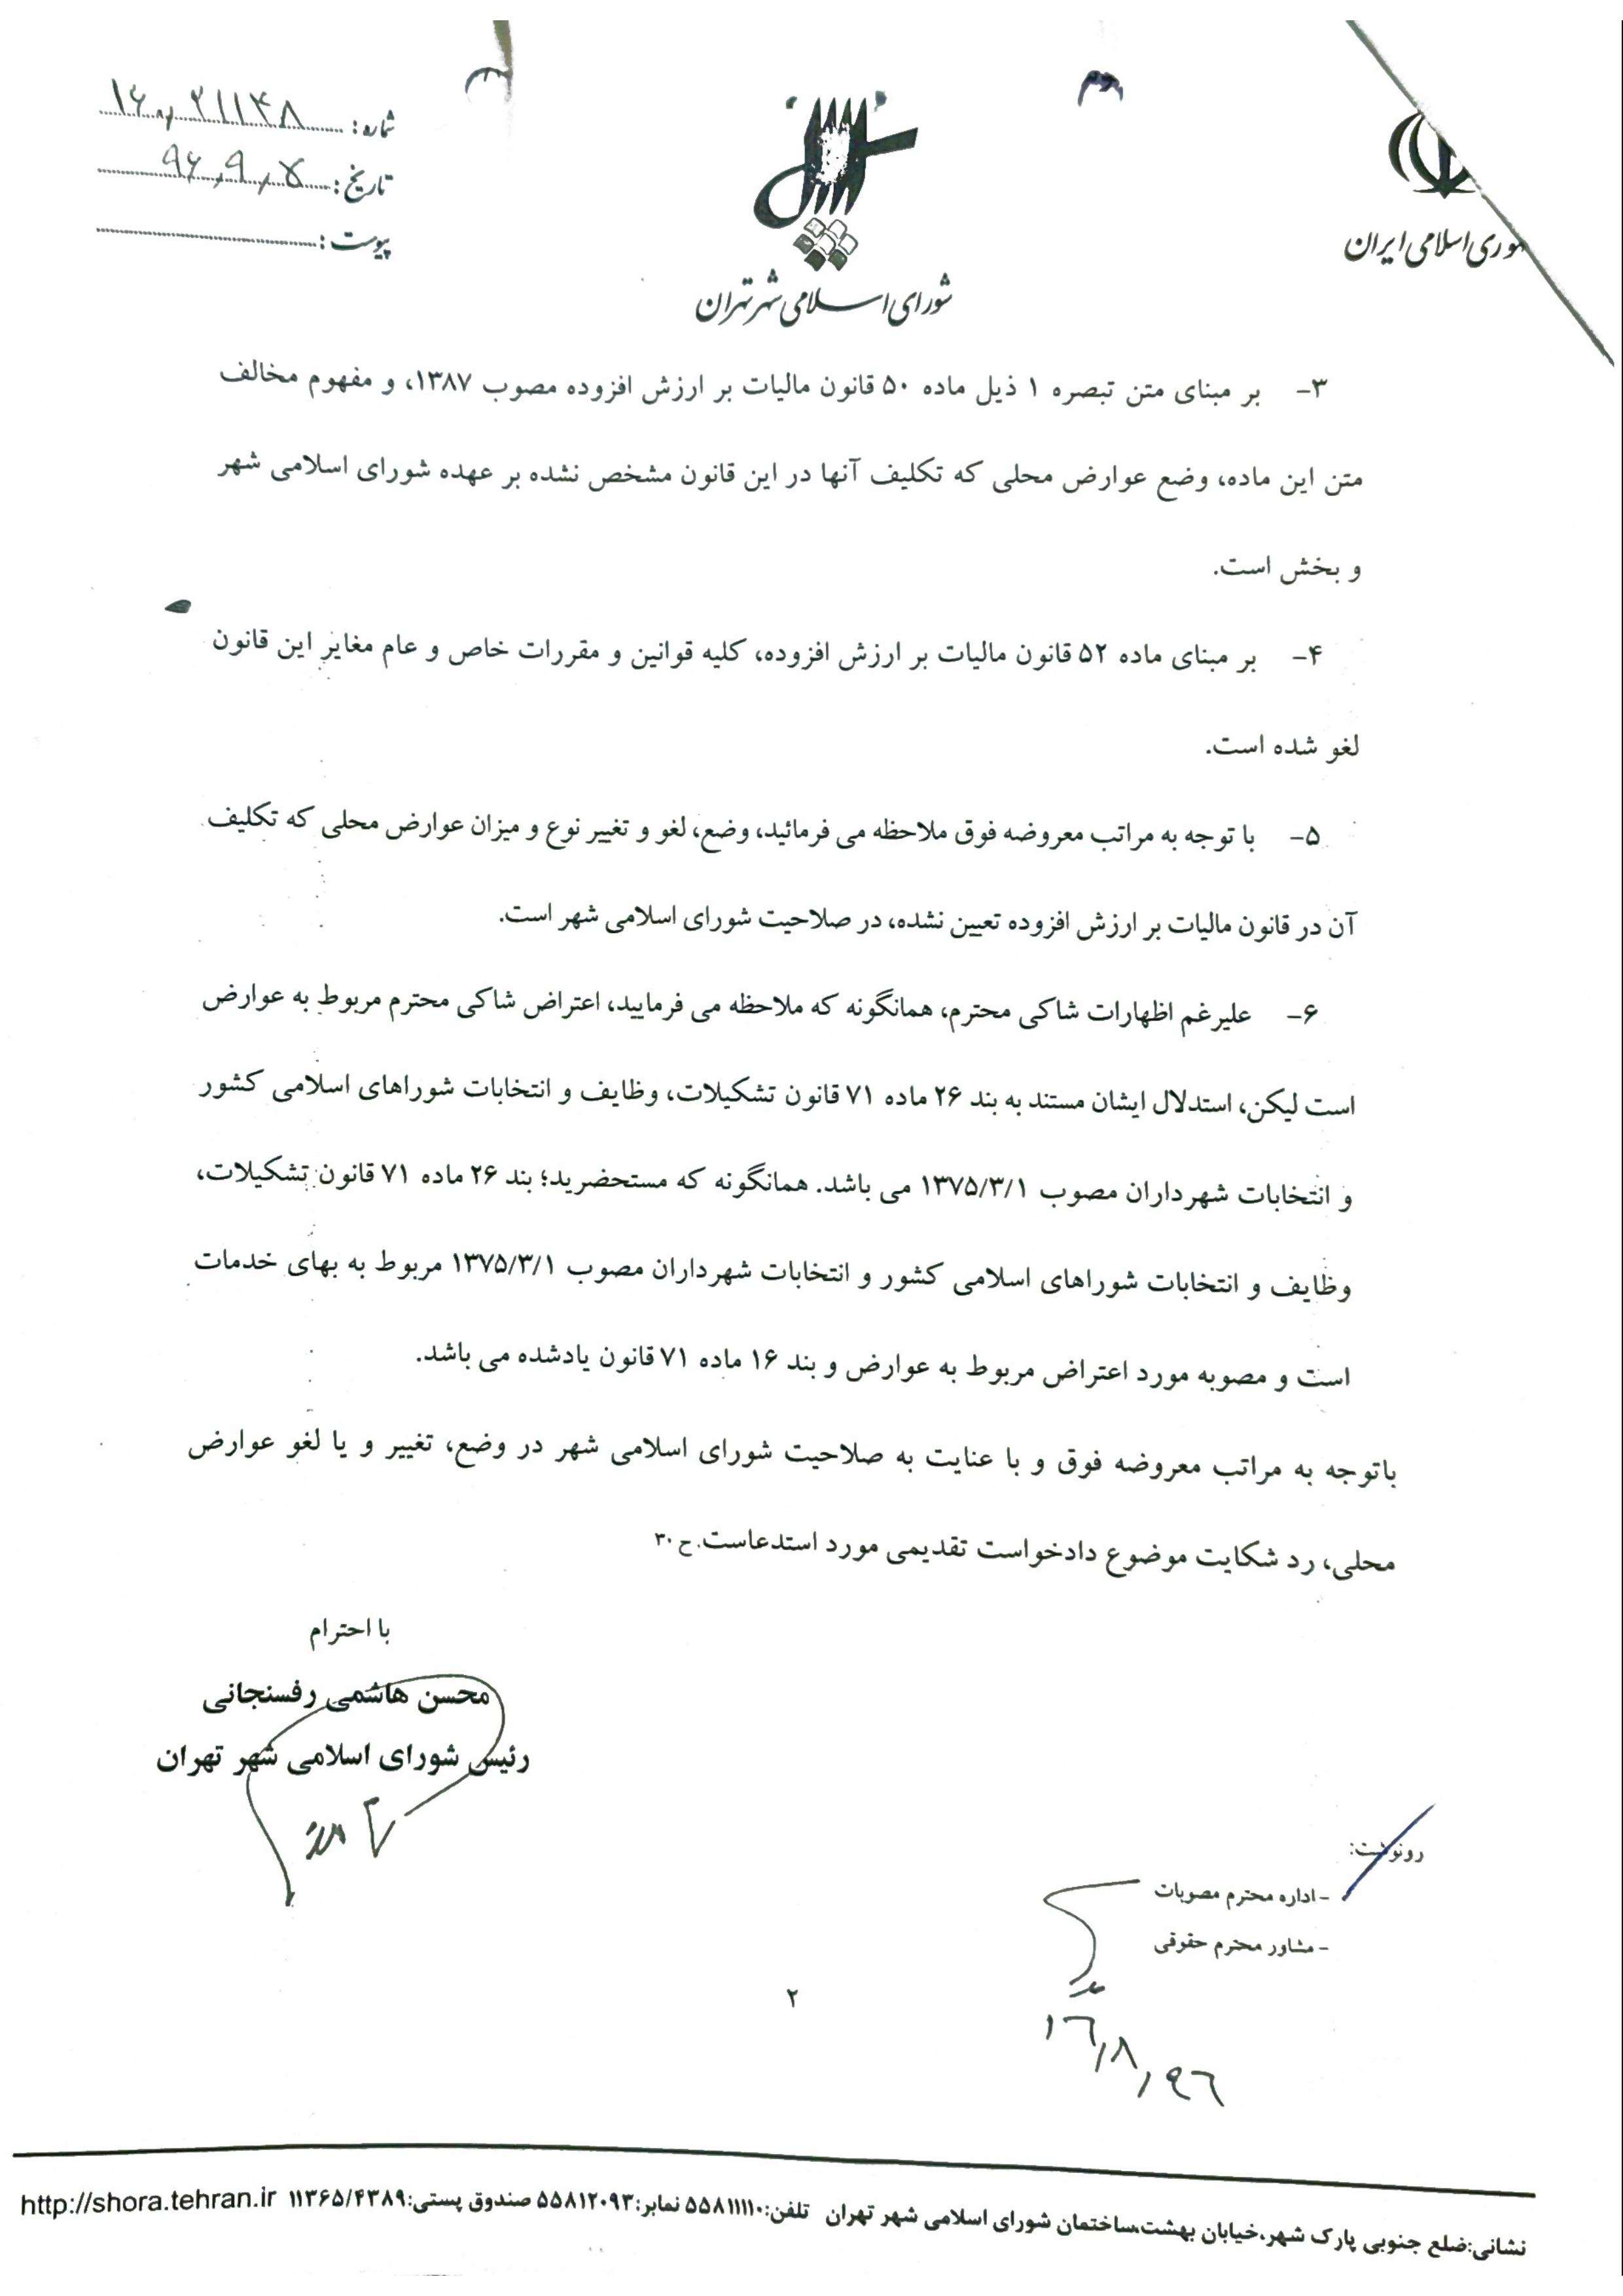 شماره: ۱۶۰/۲۱۱۴۸
تاریخ: ۹۶/۹/۷
پیوست:
وری اسلامی ایران
شورای اسلامی شهر تهران
۳- بر مبنای متن تبصره ۱ ذیل ماده ۵۰ قانون مالیات بر ارزش افزوده مصوب ۱۳۸۷، و مفهوم مخالف
متن این ماده، وضع عوارض محلی که تکلیف آنها در این قانون مشخص نشده بر عهده شورای اسلامی شهر
و بخش است.
۴- بر مبنای ماده ۵۲ قانون مالیات بر ارزش افزوده، کلیه قوانین و مقررات خاص و عام مغایر این قانون
لغو شده است.
۵- با توجه به مراتب معروضه فوق ملاحظه می فرمائید، وضع، لغو و تغییر نوع و میزان عوارض محلی که تکلیف
آن در قانون مالیات بر ارزش افزوده تعیین نشده، در صلاحیت شورای اسلامی شهر است.
۶- علیرغم اظهارات شاکی محترم، همانگونه که ملاحظه می فرمایید، اعتراض شاکی محترم مربوط به عوارض
است لیکن، استدلال ایشان مستند به بند ۲۶ ماده ۷۱ قانون تشکیلات، وظایف و انتخابات شوراهای اسلامی کشور
و انتخابات شهرداران مصوب ۱۳۷۵/۳/۱ می باشد. همانگونه که مستحضرید؛ بند ۲۶ ماده ۷۱ قانون تشکیلات،
وظایف و انتخابات شوراهای اسلامی کشور و انتخابات شهرداران مصوب ۱۳۷۵/۳/۱ مربوط به بهای خدمات
است و مصوبه مورد اعتراض مربوط به عوارض و بند ۱۶ ماده ۷۱ قانون یادشده می باشد.
باتوجه به مراتب معروضه فوق و با عنایت به صلاحیت شورای اسلامی شهر در وضع، تغییر و یا لغو عوارض
محلی، رد شکایت موضوع دادخواست تقدیمی مورد استدعاست. ح ۳۰
با احترام
محسن هاشمی رفسنجانی
رئیس شورای اسلامی شهر تهران
رونوشت:
- اداره محترم مصوبات
- مشاور محترم حقوقی
۱۶/۸/۹۶
۲
نشانی:ضلع جنوبی پارک شهر،خیابان بهشت،ساختمان شورای اسلامی شهر تهران تلفن:۵۵۸۱۱۱۱۰ نمابر:۵۵۸۱۲۰۹۳ صندوق پستی:۱۱۳۶۵/۴۳۸۹ http://shora.tehran.ir